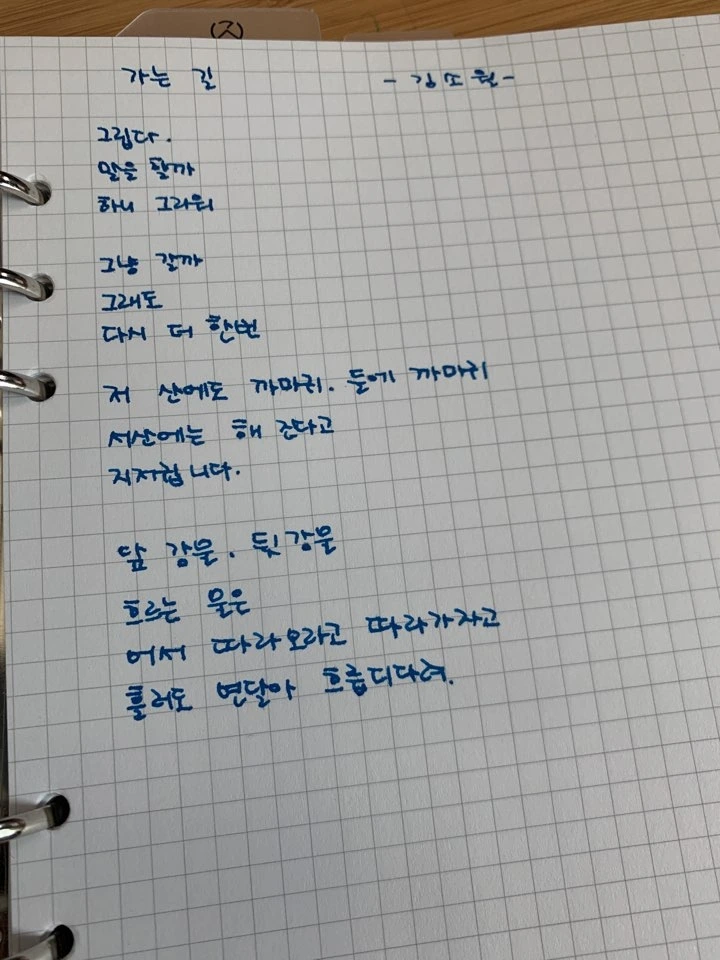 (ㅈ)
가는 길 - 김소월 -
그립다.
말을 할까
하니 그리워
그냥 갈까
그래도
다시 더 한번
저 산에도 까마귀. 들에 까마귀
서산에는 해 진다고
지저귑니다.
앞 강물. 뒷 강물
흐르는 물은
어서 따라오라고 따라가자고
흘러도 연달아 흐릅디다려.